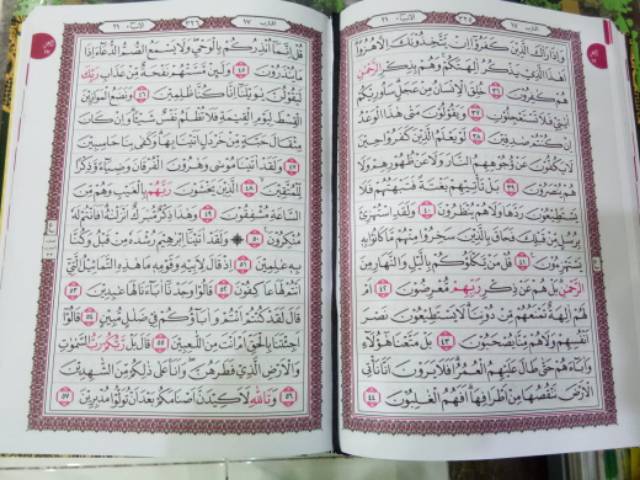 اقترب ١٧ ٣٢٥ الأنبياء ٢١
وَإِذَا رَءَاكَ الَّذِينَ كَفَرُوٓا۟ إِن يَتَّخِذُونَكَ إِلَّا هُزُوًا
أَهَٰذَا الَّذِى يَذْكُرُ ءَالِهَتَكُمْ وَهُم بِذِكْرِ الرَّحْمَٰنِ
هُمْ كَٰفِرُونَ ٣٦ خُلِقَ الْإِنسَٰنُ مِنْ عَجَلٍ سَأُو۟رِيكُمْ
ءَايَٰتِى فَلَا تَسْتَعْجِلُونِ ٣٧ وَيَقُولُونَ مَتَىٰ هَٰذَا الْوَعْدُ
إِن كُنتُمْ صَٰدِقِينَ ٣٨ لَوْ يَعْلَمُ الَّذِينَ كَفَرُوا۟ حِينَ
لَا يَكُفُّونَ عَن وُجُوهِهِمُ النَّارَ وَلَا عَن ظُهُورِهِمْ وَلَا
هُمْ يُنصَرُونَ ٣٩ بَلْ تَأْتِيهِم بَغْتَةً فَتَبْهَتُهُمْ فَلَا
يَسْتَطِيعُونَ رَدَّهَا وَلَا هُمْ يُنظَرُونَ ٤٠ وَلَقَدِ اسْتُهْزِئَ
بِرُسُلٍ مِّن قَبْلِكَ فَحَاقَ بِالَّذِينَ سَخِرُوا۟ مِنْهُم مَّا كَانُوا۟ بِهِۦ
يَسْتَهْزِءُونَ ٤١ قُلْ مَن يَكْلَؤُكُم بِالَّيْلِ وَالنَّهَارِ مِنَ
الرَّحْمَٰنِ بَلْ هُمْ عَن ذِكْرِ رَبِّهِم مُّعْرِضُونَ ٤٢ أَمْ
لَهُمْ ءَالِهَةٌ تَمْنَعُهُم مِّن دُونِنَا لَا يَسْتَطِيعُونَ نَصْرَ
أَنفُسِهِمْ وَلَا هُم مِّنَّا يُصْحَبُونَ ٤٣ بَلْ مَتَّعْنَا هَٰٓؤُلَآءِ
وَءَابَآءَهُمْ حَتَّىٰ طَالَ عَلَيْهِمُ الْعُمُرُ أَفَلَا يَرَوْنَ أَنَّا نَأْتِى
الْأَرْضَ نَنقُصُهَا مِنْ أَطْرَافِهَآ أَفَهُمُ الْغَٰلِبُونَ ٤٤
اقترب ١٧ ٣٢٦ الأنبياء ٢١
قُلْ إِنَّمَآ أُنذِرُكُم بِالْوَحْىِ وَلَا يَسْمَعُ الصُّمُّ الدُّعَآءَ إِذَا
مَا يُنذَرُونَ ٤٥ وَلَئِن مَّسَّتْهُمْ نَفْحَةٌ مِّنْ عَذَابِ رَبِّكَ
لَيَقُولُنَّ يَٰوَيْلَنَآ إِنَّا كُنَّا ظَٰلِمِينَ ٤٦ وَنَضَعُ الْمَوَٰزِينَ
الْقِسْطَ لِيَوْمِ الْقِيَٰمَةِ فَلَا تُظْلَمُ نَفْسٌ شَيْـًٔا وَإِن كَانَ
مِثْقَالَ حَبَّةٍ مِّنْ خَرْدَلٍ أَتَيْنَا بِهَا وَكَفَىٰ بِنَا حَٰسِبِينَ
٤٧ وَلَقَدْ ءَاتَيْنَا مُوسَىٰ وَهَٰرُونَ الْفُرْقَانَ وَضِيَآءً وَذِكْرًا
لِّلْمُتَّقِينَ ٤٨ الَّذِينَ يَخْشَوْنَ رَبَّهُم بِالْغَيْبِ وَهُم مِّنَ
السَّاعَةِ مُشْفِقُونَ ٤٩ وَهَٰذَا ذِكْرٌ مُّبَارَكٌ أَنزَلْنَٰهُ أَفَأَنتُمْ لَهُۥ
مُنكِرُونَ ٥٠ ۞ وَلَقَدْ ءَاتَيْنَآ إِبْرَٰهِيمَ رُشْدَهُۥ مِن قَبْلُ وَكُنَّا
بِهِۦ عَٰلِمِينَ ٥١ إِذْ قَالَ لِأَبِيهِ وَقَوْمِهِۦ مَا هَٰذِهِ التَّمَاثِيلُ الَّتِىٓ
أَنتُمْ لَهَا عَٰكِفُونَ ٥٢ قَالُوا۟ وَجَدْنَآ ءَابَآءَنَا لَهَا عَٰبِدِينَ ٥٣
قَالَ لَقَدْ كُنتُمْ أَنتُمْ وَءَابَآؤُكُمْ فِى ضَلَٰلٍ مُّبِينٍ ٥٤ قَالُوٓا۟
أَجِئْتَنَا بِالْحَقِّ أَمْ أَنتَ مِنَ اللَّٰعِبِينَ ٥٥ قَالَ بَل رَّبُّكُمْ رَبُّ السَّمَٰوَٰتِ
وَالْأَرْضِ الَّذِى فَطَرَهُنَّ وَأَنَا۠ عَلَىٰ ذَٰلِكُم مِّنَ الشَّٰهِدِينَ
٥٦ وَتَاللَّهِ لَأَكِيدَنَّ أَصْنَٰمَكُم بَعْدَ أَن تُوَلُّوا۟ مُدْبِرِينَ ٥٧